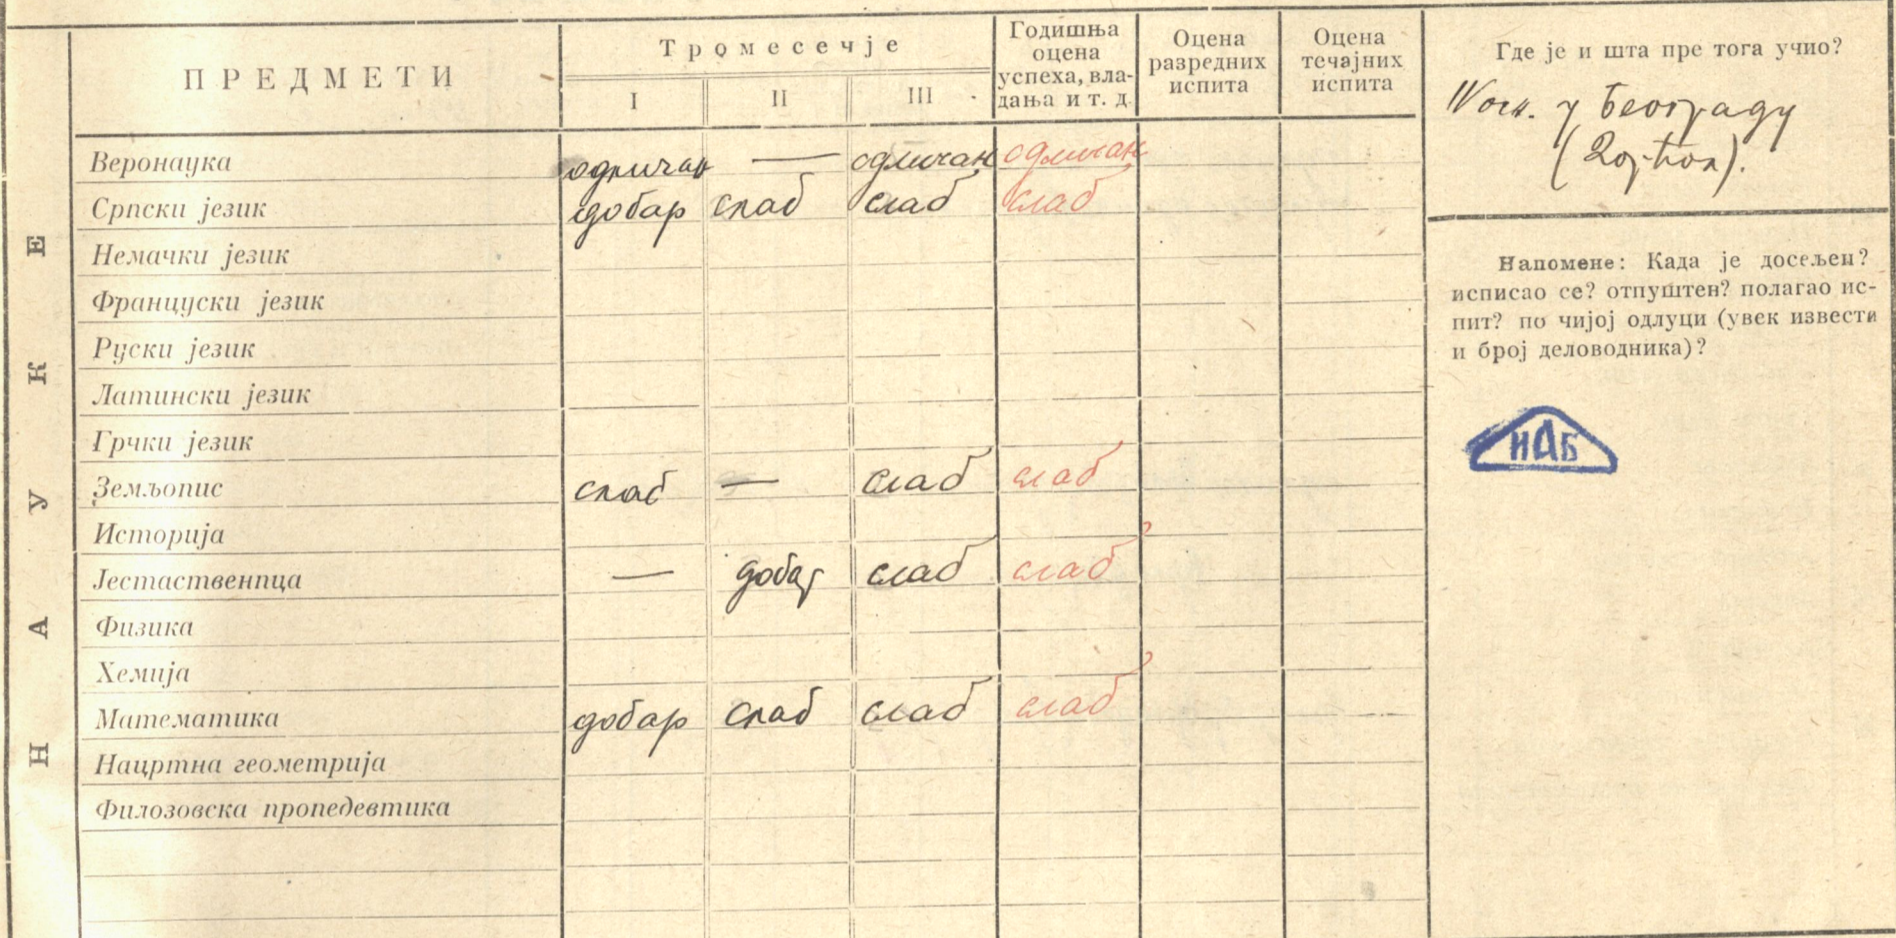 НАУКЕ
ПРЕДМЕТИ
Тромесечје
I II III
Годишња
оцена
успеха, вла-
дања и т. д.
Оцена
разредних
испита
Оцена
течајних
испита
Веронаука одличан — одличан одличан
Српски језик добар слаб слаб слаб
Немачки језик
Француски језик
Руски језик
Латински језик
Грчки језик
Земљопис слаб — слаб слаб
Историја
Јестаственица — добар слаб слаб
Физика
Хемија
Математика добар слаб слаб слаб
Нацртна геометрија
Филозовска пропедевтика
Где је и шта пре тога учио?
IV осн. у Београду
Напомене: Када је досељен?
исписао се? отпуштен? полагао ис-
пит? по чијој одлуци (увек извести
и број деловодника)?
ИАБ